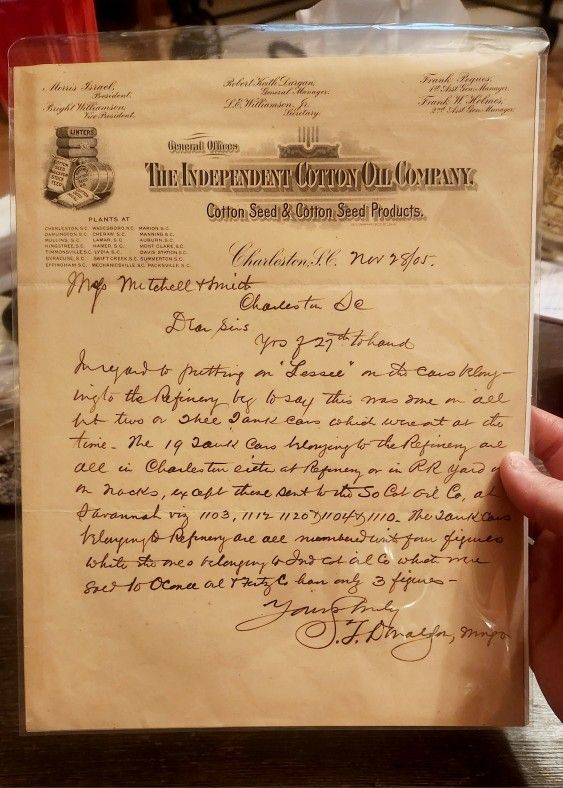 Morris Israel,
President.
Bright Williamson,
Vice President.
Robert Keith Dargan,
General Manager.
L.E. Williamson, Jr.
Secretary.
Frank Pegues,
1st Asst Gen. Manager.
Frank W. Holmes,
2nd Asst Gen. Manager.
LINTERS
General Offices
THE INDEPENDENT COTTON OIL COMPANY,
Cotton Seed & Cotton Seed Products.
PLANTS AT
CHARLESTON, S.C. WADESBORO, N.C. MARION, S.C.
DARLINGTON, S.C. CHERAW, S.C. MANNING, S.C.
MULLINS, S.C. LAMAR, S.C. AUBURN, S.C.
KINGSTREE, S.C. HAMER, S.C. MONT CLARE, S.C.
TIMMONSVILLE, S.C. LYDIA, S.C. CAIN STATION, S.C.
SYRACUSE, S.C. SWIFT CREEK, S.C. SUMMERTON, S.C.
EFFINGHAM, S.C. MECHANICSVILLE, S.C. PACKSVILLE, S.C.
Charleston, S.C. Nov 28/05.
Mitchell & Smith
Charleston SC
Dear Sirs
Yrs of 27th to hand
In regard to putting on "Lessee" on the cars belong-
ing to the Refinery beg to say this was done on all
but two or three Tank cars which were out at the
time - The 19 Tank Cars belonging to the Refinery are
all in Charleston either at Refinery or in RR yard or
on tracks, except those sent to the So Cot Oil Co, at
Savannah viz 1103, 1112 1120 & 1104 & 1110. The Tank Cars
belonging to Refinery are all numbered with four figures
while the ones belonging to Ind Cot Oil Co what were
sold to Oconee Oil & Fertz Co have only 3 figures -
Yours truly
Donaldson, Mngr